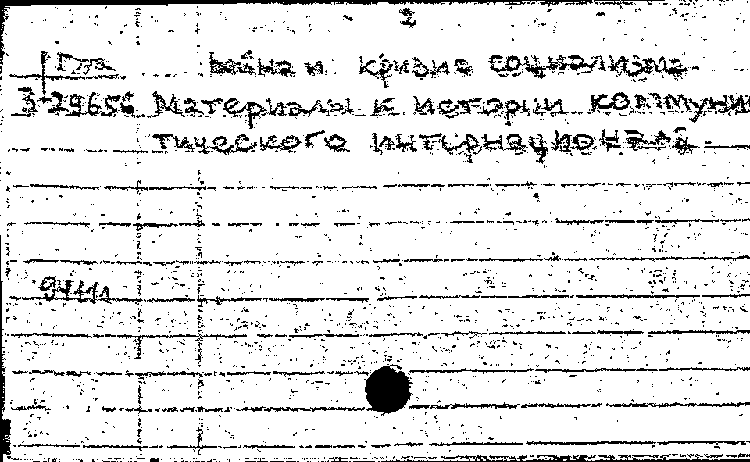 2
Война и кризис социализма.
3-29656 Материалы к истории коммунис
тического интернационала.